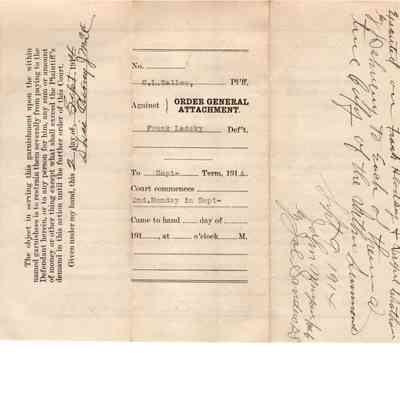 The object in serving this garnishment upon the within
named garnishees is to restrain them severally from paying to the
Defendant herein, or to any person for him, any sum or amount
of money or other thing except what shall exceed the Plaintiff's
demand in this action until the further order of this Court.
Given under my hand, this 2 day of Sept. 1914
No.
Pl'ff.
Against } ORDER GENERAL
ATTACHMENT.
Frank Def't.
To Sept- Term, 1914.
Court commences
2nd.Monday in Sept-
Came to hand day of
191 , at o'clock M.
Executed on Frank &
by Delivering To Each of Them a
True Copy of the Within Summons
Sept 9 1914
John
By